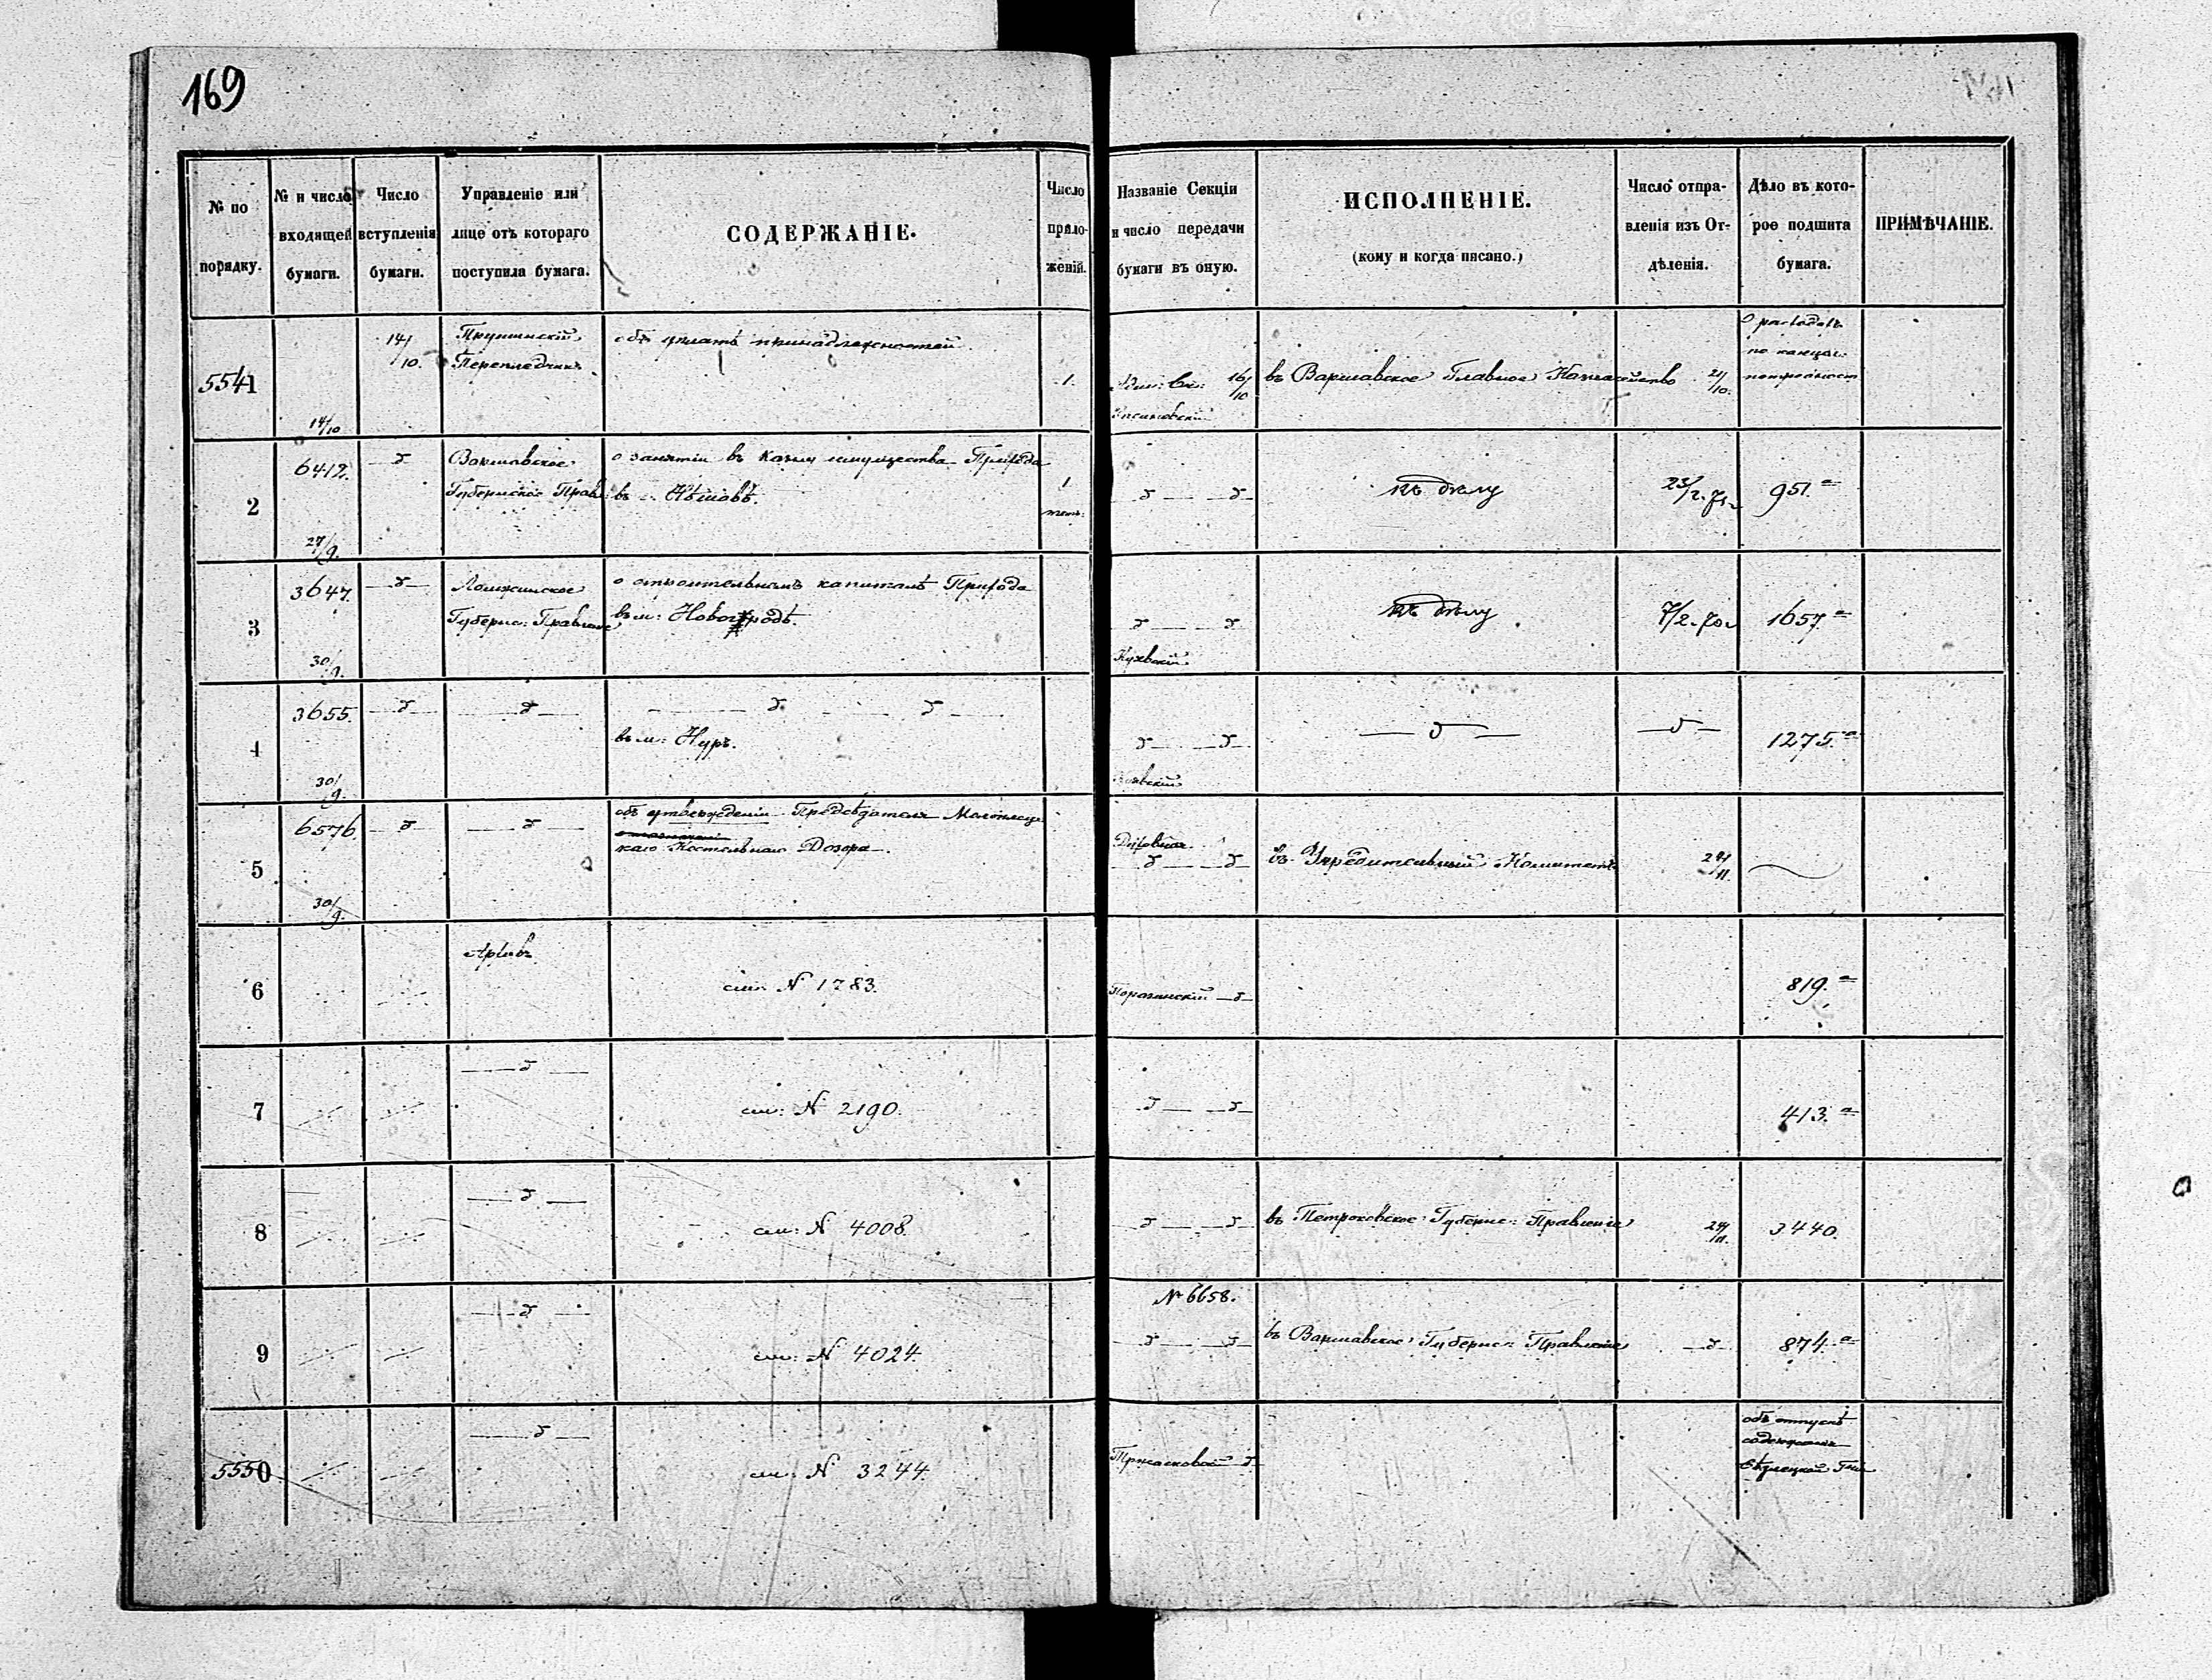 169
№ по порядку.
№ и число входящей бумаги.
Число вступленія бумаги.
Управленіе или лице отъ котораго поступила бумага.
СОДЕРЖАНІЕ.
Число приложеній.
Названіе Секціи и число передачи бумаги въ оную.
ИСПОЛНЕНІЕ.
(кому и когда писано.)
Число отправленія изъ Отдѣленія.
Дѣло въ которое подшита бумага.
ПРИМѢЧАНІЕ.
5541 14/10 14/10. Переплетчикъ объ уплатѣ принадлежностей 1. 16/10 въ Варшавское Главное Казначейство 21/10. О расходахъ по канцел.
2 6412. 27/9. —д— Варшавское Губернское Правл: о занятіи въ казну имущества Прихода въ 1 —д— —д— къ дѣлу 23/2. 951.а
3 3647. 30/9. —д— Ломжинское Губернс: Правленіе о строительномъ капиталѣ Прихода въ м: Новогродѣ. —д— —д— къ дѣлу 7/2. 1657.а
4 3655. 30/9. —д— —д— —д— —д— въ м: Нуръ. —д— —д— —д— —д— 1275.а
5 6576. 30/9. —д— —д— объ утвержденіи Предсѣдателя
каго Костельнаго Дозора. Духовная —д— —д— въ Учредительный Комитетъ 24/11.
6 Архивъ см: N 1783. —д— 819.а
7 —д— см: N 2190. —д— —д— 413.а
8 —д— см: N 4008. —д— —д— въ Петроковское Губернс: Правленіе 24/11. 3440.
9 —д— см: N 4024. № 6658. —д— —д— въ Варшавское Губернс: Правленіе —д— 874.а
5550 —д— см: N 3244. д— объ отпускѣ содержанія